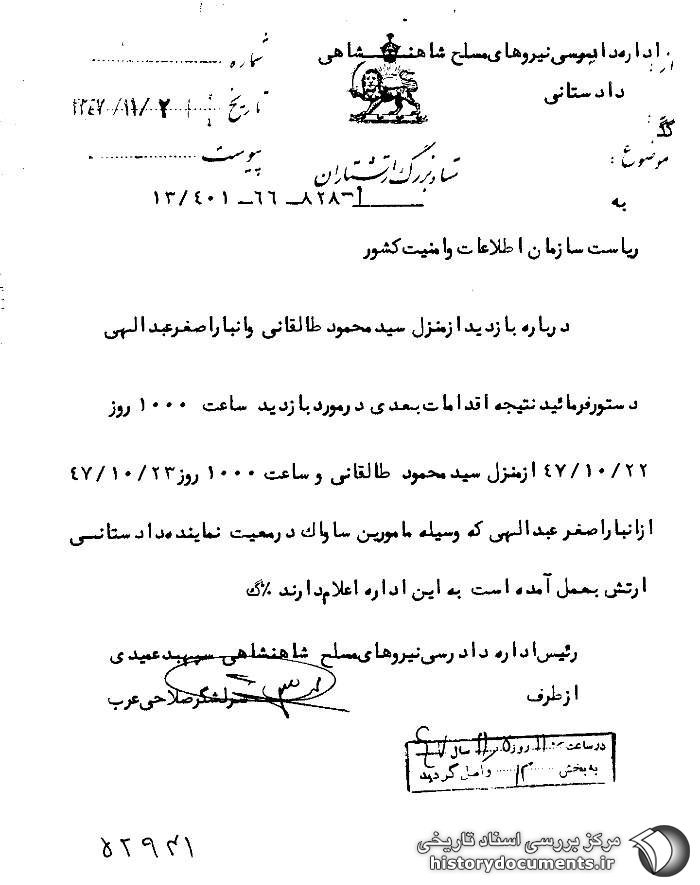 از: اداره دادرسی نیروهای مسلح شاهنشاهی
دادستانی
شماره
تاریخ ۱۳۴۷/۱۱/۲
پیوست
موضوع:
ستاد بزرگ ارتشتاران
به
۱۳/۴۰۱ـ ۶۶ـ ۸۲۸
ریاست سازمان اطلاعات وامنیت کشور
درباره بازدید ازمنزل سید محمود طالقانی وانبار اصغر عبدالهی
دستورفرمائید نتیجه اقدامات بعدی درمورد بازدید ساعت ۱۰۰۰ روز
۴۷/۱۰/۲۲ ازمنزل سید محمود طالقانی و ساعت ۱۰۰۰ روز ۴۷/۱۰/۲۳
ازانبار اصغر عبدالهی که وسیله مامورین ساواك درمعیت نماینده دادستانی
ارتش بعمل آمده است به این اداره اعلام دارند %گ
رئیس اداره دادرسی نیروهای مسلح شاهنشاهی سپهبد عمیدی
ازطرف
سرلشگر صلاحی عرب
در ساعت روز سال ۴۷
به بخش واصل گردید
۵۲۹۳۱
مرکز بررسی اسناد تاریخی
historydocuments.ir